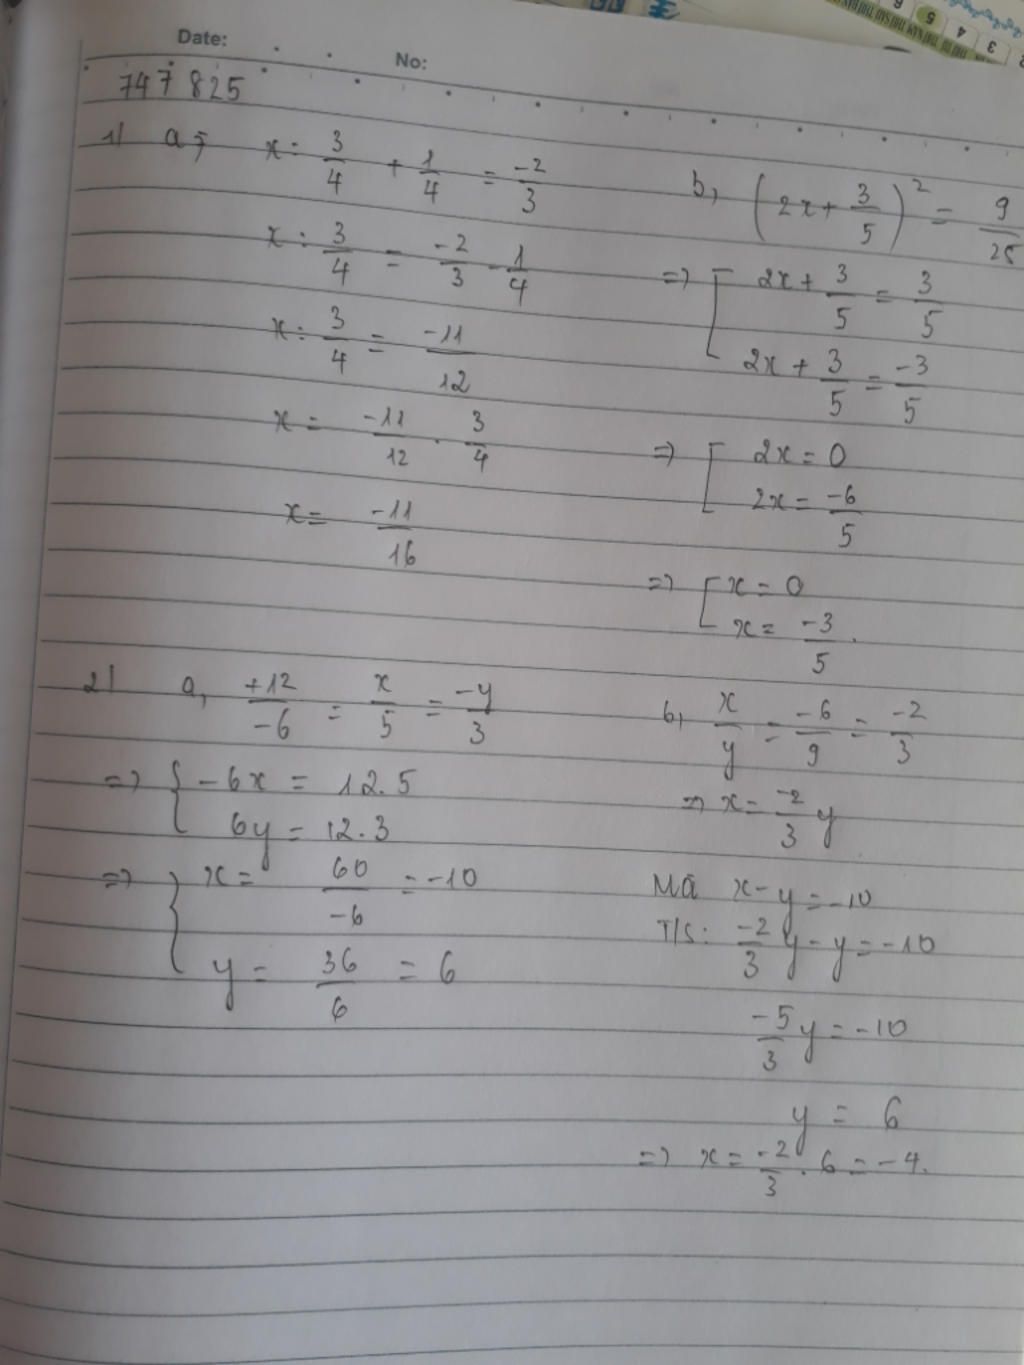 Date:
No:
747 825
1) a, x : 3/4 + 1/4 = -2/3
x : 3/4 = -2/3 - 1/4
x : 3/4 = -11/12
x = -11/12 . 3/4
x = -11/16
b, (2x + 3/5)² = 9/25
=> [ 2x + 3/5 = 3/5
2x + 3/5 = -3/5
=> [ 2x = 0
2x = -6/5
=> [ x = 0
x = -3/5 .
2) a, +12/-6 = x/5 = -y/3
=> { -6x = 12.5
6y = 12.3
=> { x = 60/-6 = -10
y = 36/6 = 6
b, x/y = -6/9 = -2/3
=> x = -2/3 y
Mà x - y = -10
T/S: -2/3 y - y = -10
-5/3 y = -10
y = 6
=> x = -2/3 . 6 = -4.